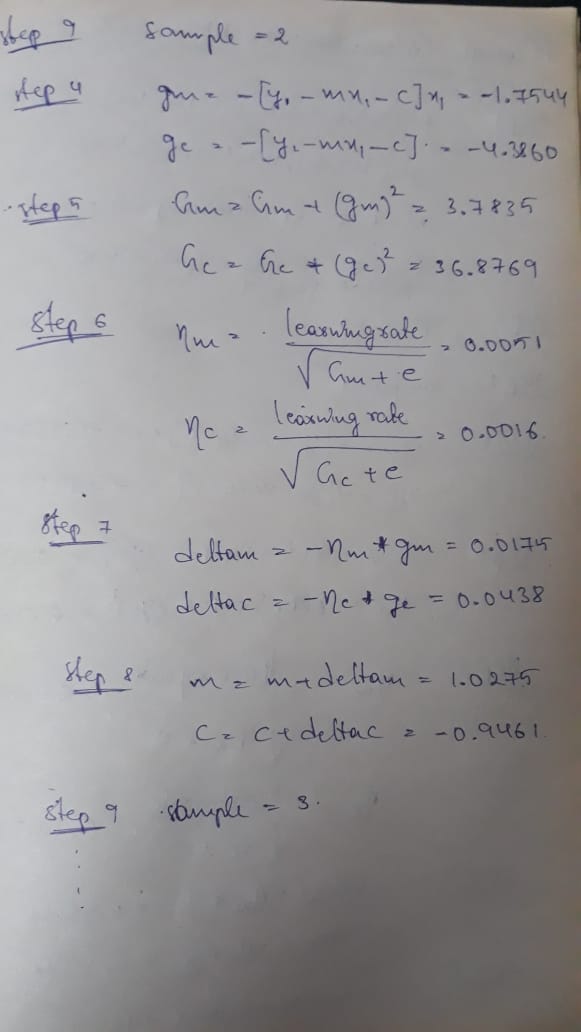 Step 9 sample = 2
Step 4 gm = -[y₁ - mx₁ - c]x₁ = -1.7544
gc = -[y₁ - mx₁ - c] = -4.3860
Step 5 Gm = Gm + (gm)² = 3.7835
Gc = Gc + (gc)² = 36.8769
Step 6 ηm = learning rate / √Gm + e = 0.0051
ηc = learning rate / √Gc + e = 0.0016
Step 7
deltam = -ηm * gm = 0.0175
deltac = -ηc * gc = 0.0438
Step 8 m = m + deltam = 1.0275
c = c + deltac = -0.9461
Step 9 sample = 3.